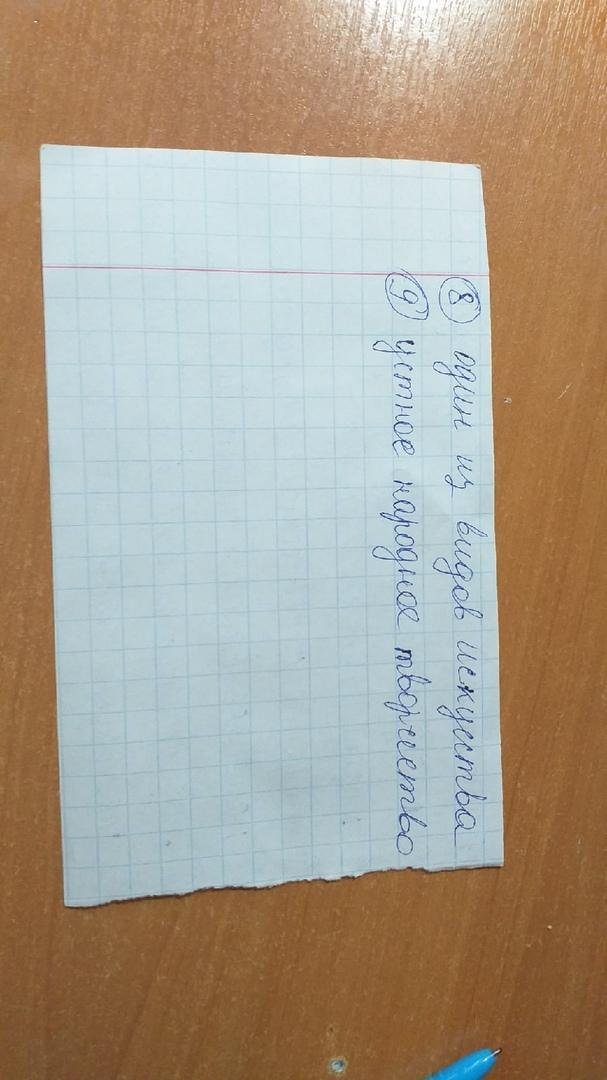 8 один из видов искуства
9 устное народное творчество